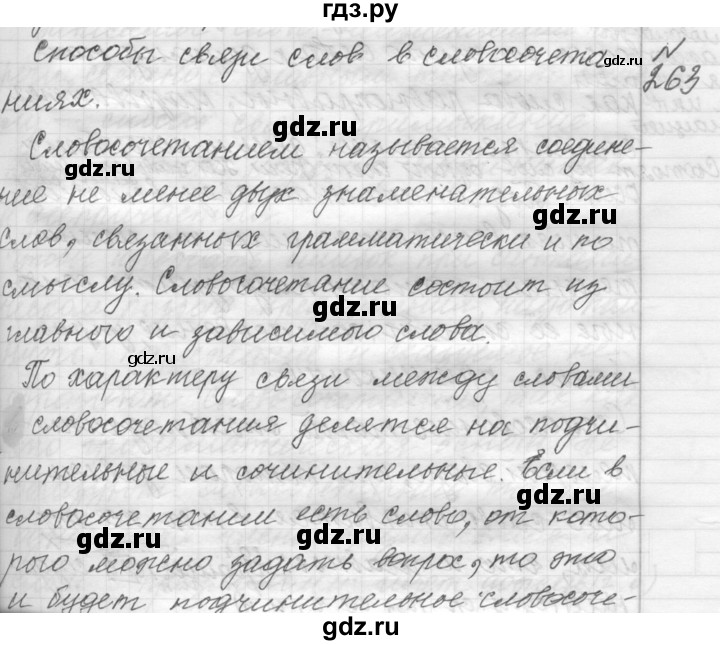 гдз.ру
Способы связи слов в словосочета-
ниях.
№
263
Словосочетанием называется соедине-
ние не менее двух знаменательных
слов, связанных грамматически и по
смыслу. Словосочетание состоит из
главного и зависимого слова.
По характеру связи между словами
словосочетания делятся на подчи-
нительные и сочинительные. Если в
словосочетании есть слово, от кото-
рого можно задать вопрос, то это
и будет подчинительное словосоче-
gdz.ru
gdz.ru
gdz.ru
gdz.ru
gdz.ru
gdz.ru
gdz.ru
gdz.ru
gdz.ru
gdz.ru